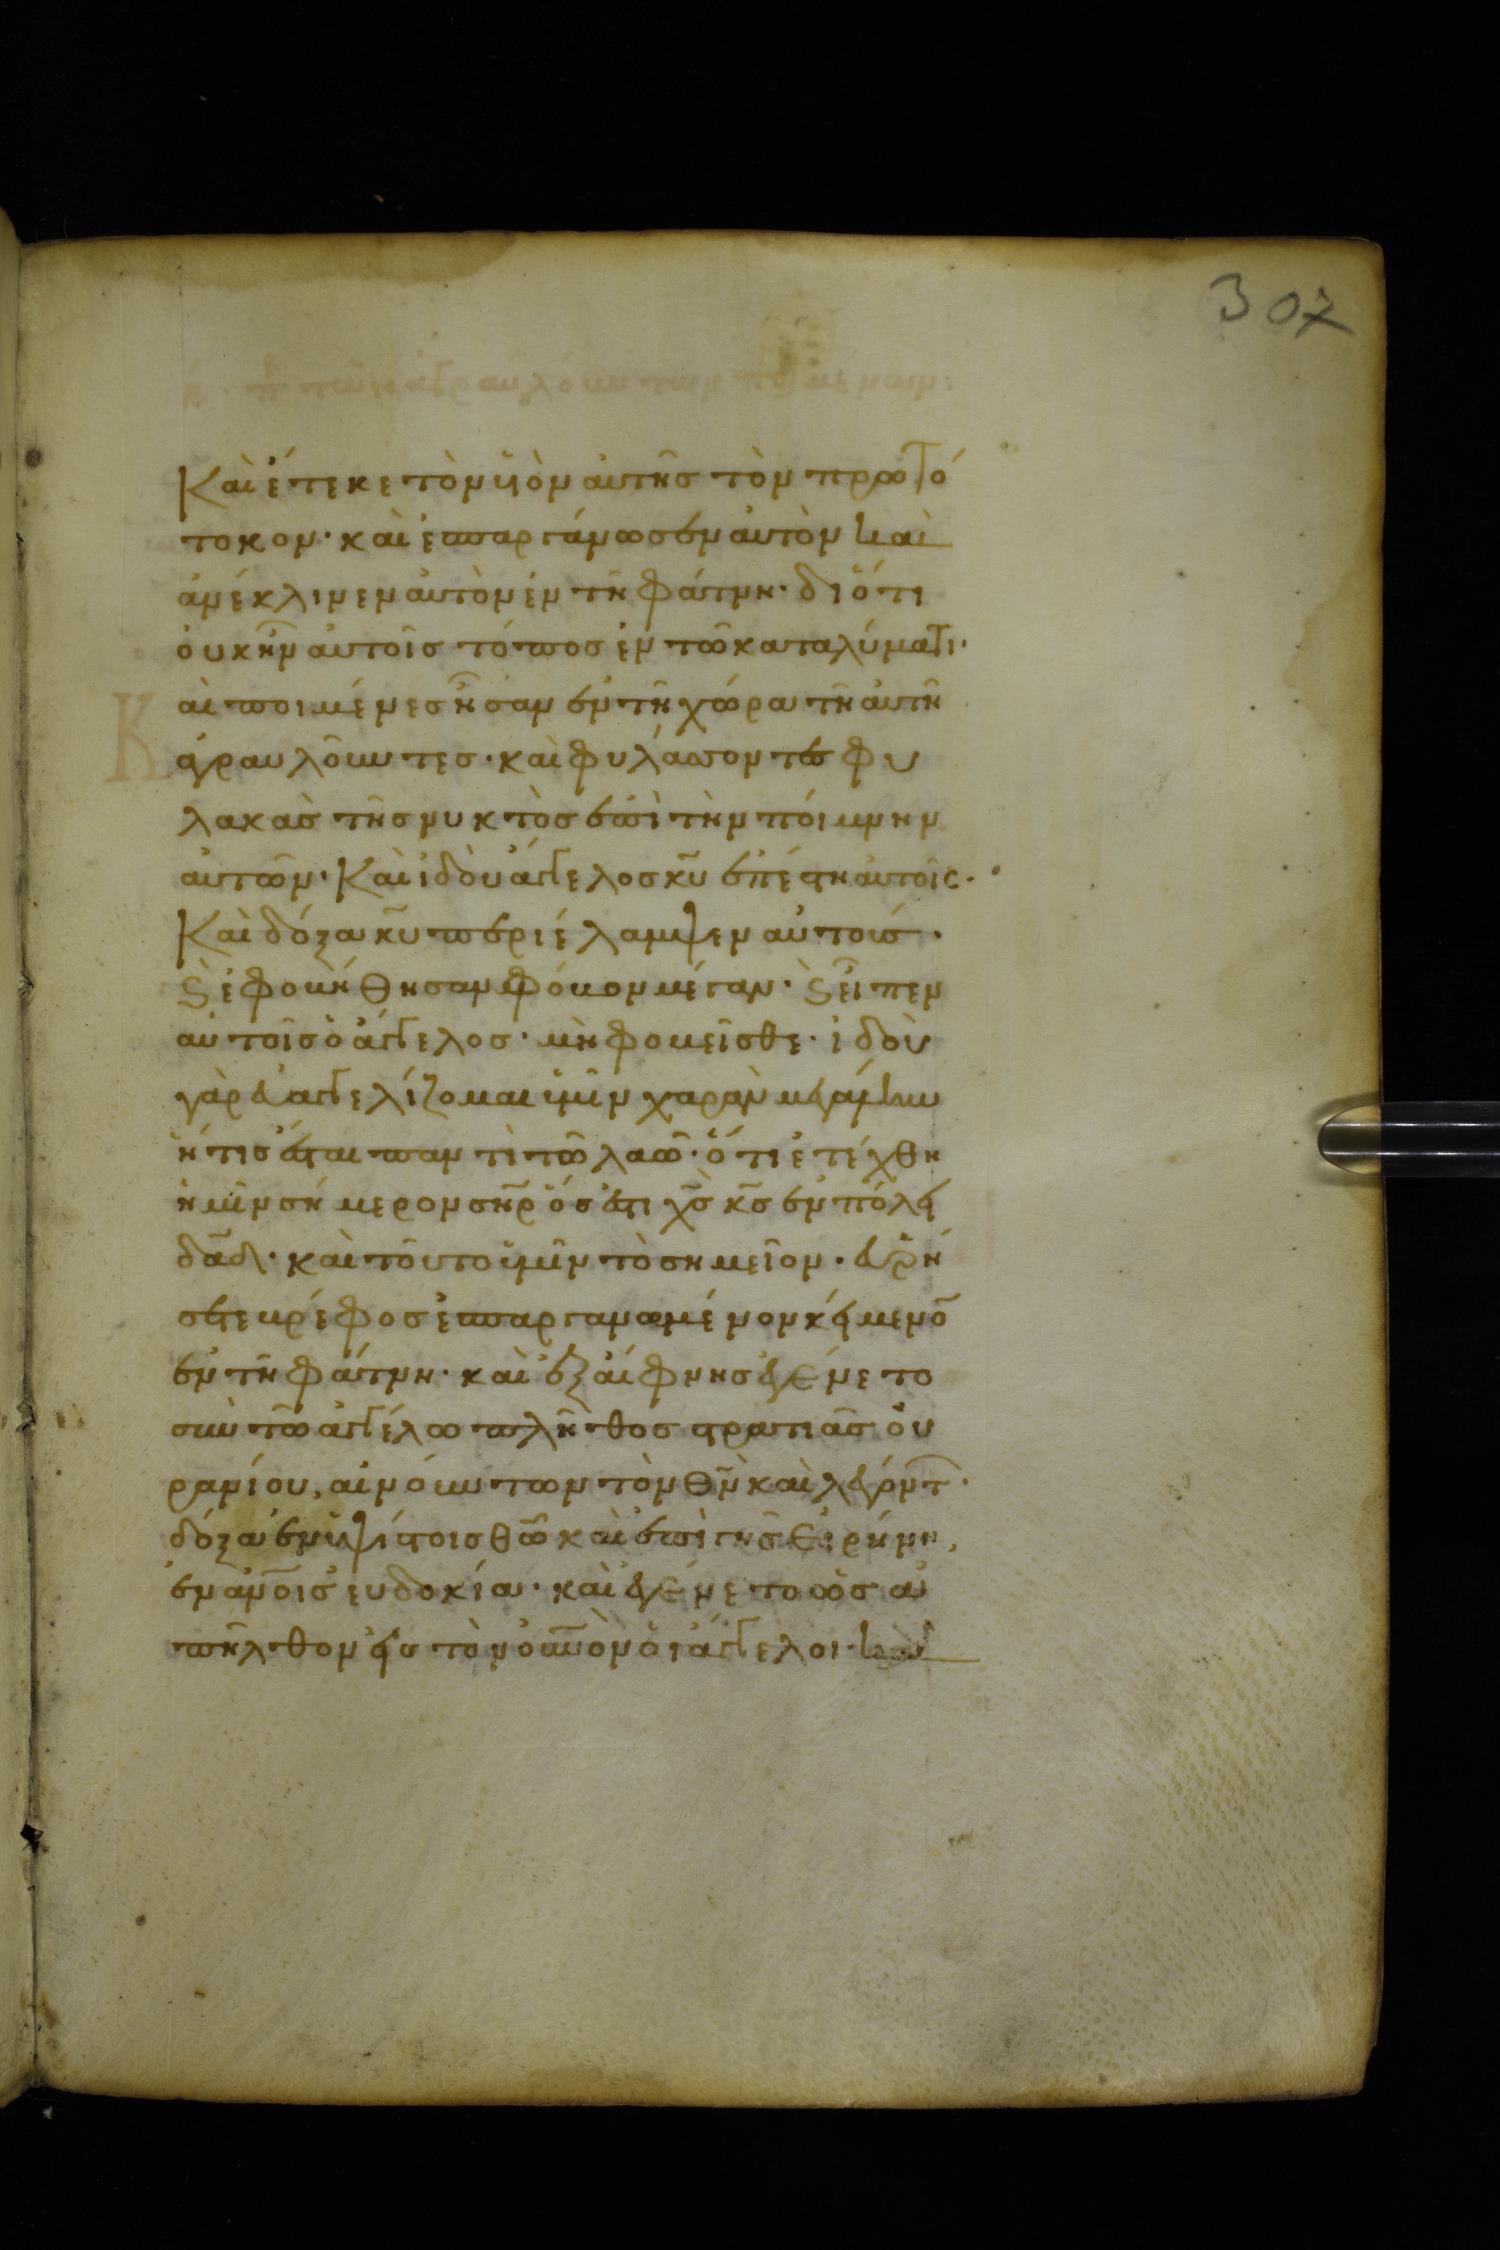 307
β περὶ τῶν ἀγραυλούντων ποιμένων:
Καὶ ἔτεκε τὸν υἱὸν αὐτῆς τὸν πρωτό
τοκον· καὶ ἐσπαργάνωσεν αὐτὸν καὶ
ἀνέκλινεν αὐτὸν ἐν τῆ φάτνη· διότι
οὐκ ἦν αὐτοῖς τόπος ἐν τῶ καταλύματι·
Καὶ ποιμένες ἦσαν ἐν τῆ χώρα τῆ αὐτῆ
ἀγραυλοῦντες· καὶ φυλάσσοντες φυ
λακὰς τῆς νυκτὸς ἐπὶ τὴν ποίμνην
αὐτῶν· Καὶ ἰδοὺ ἄγγελος κ̅υ̅ ἐπέστη αὐτοῖς·
Καὶ δόξα κ̅υ̅ περιέλαμψεν αὐτούς·
Ϗ ἐφοβήθησαν φόβον μέγαν· Ϗ εἶπεν
αὐτοῖς ὁ ἄγγελος· μὴ φοβεῖσθε· ἰδοὺ
γὰρ εὐαγγελίζομαι ὑμῖν χαρὰν μεγάλην
ἥτις ἔσται παντὶ τῶ λαῶ· ὅτι ἐτέχθη
ἡμῖν σήμερον σ̅η̅ρ̅ ὅς ἐστι χ̅ς̅ κ̅ς̅ ἐν πόλει
δ̅α̅δ̅· καὶ τοῦτο ὑμῖν τὸ σημεῖον· εὑρή
σετε βρέφος ἐσπαργανωμένον κείμενο̅
ἐν τῆ φάτνη· καὶ ἐξαίφνης ἐγένετο
σὺν τῶ ἀγγέλω πλῆθος στρατιᾶς οὐ
ρανίου, αἰνούντων τὸν θ̅ν̅ καὶ λεγόντ̅·
δόξα ἐν ὑψίστοις θ̅ω̅ καὶ ἐπὶ γῆς εἰρήνη,
ἐν α̅ν̅ο̅ι̅ς̅ εὐδοκία· καὶ ἐγένετο ὡς ἀ
πῆλθον εἰς τὸν ο̅υ̅ν̅ο̅ν̅ οἱ ἄγγελοι· καὶ